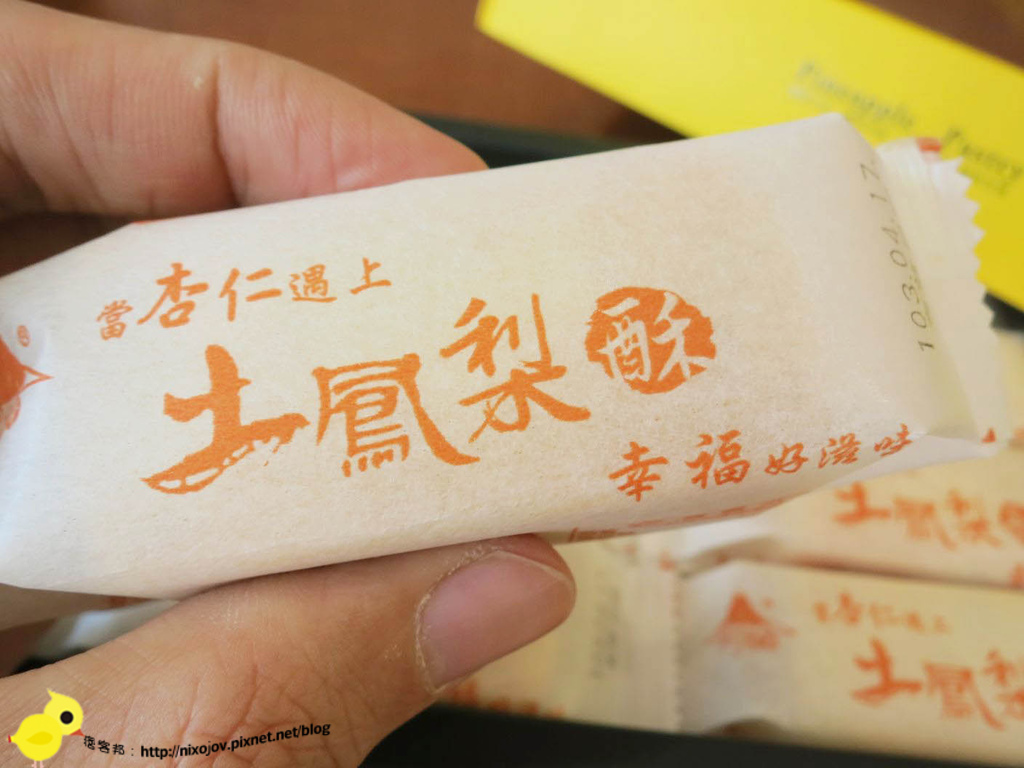 當杏仁遇上
土鳳梨酥
幸福好滋味
103.04.17
Pineapple Pastry
土鳳梨
當杏仁遇上
土鳳梨
痞客邦：http://nixojov.pixnet.net/blog